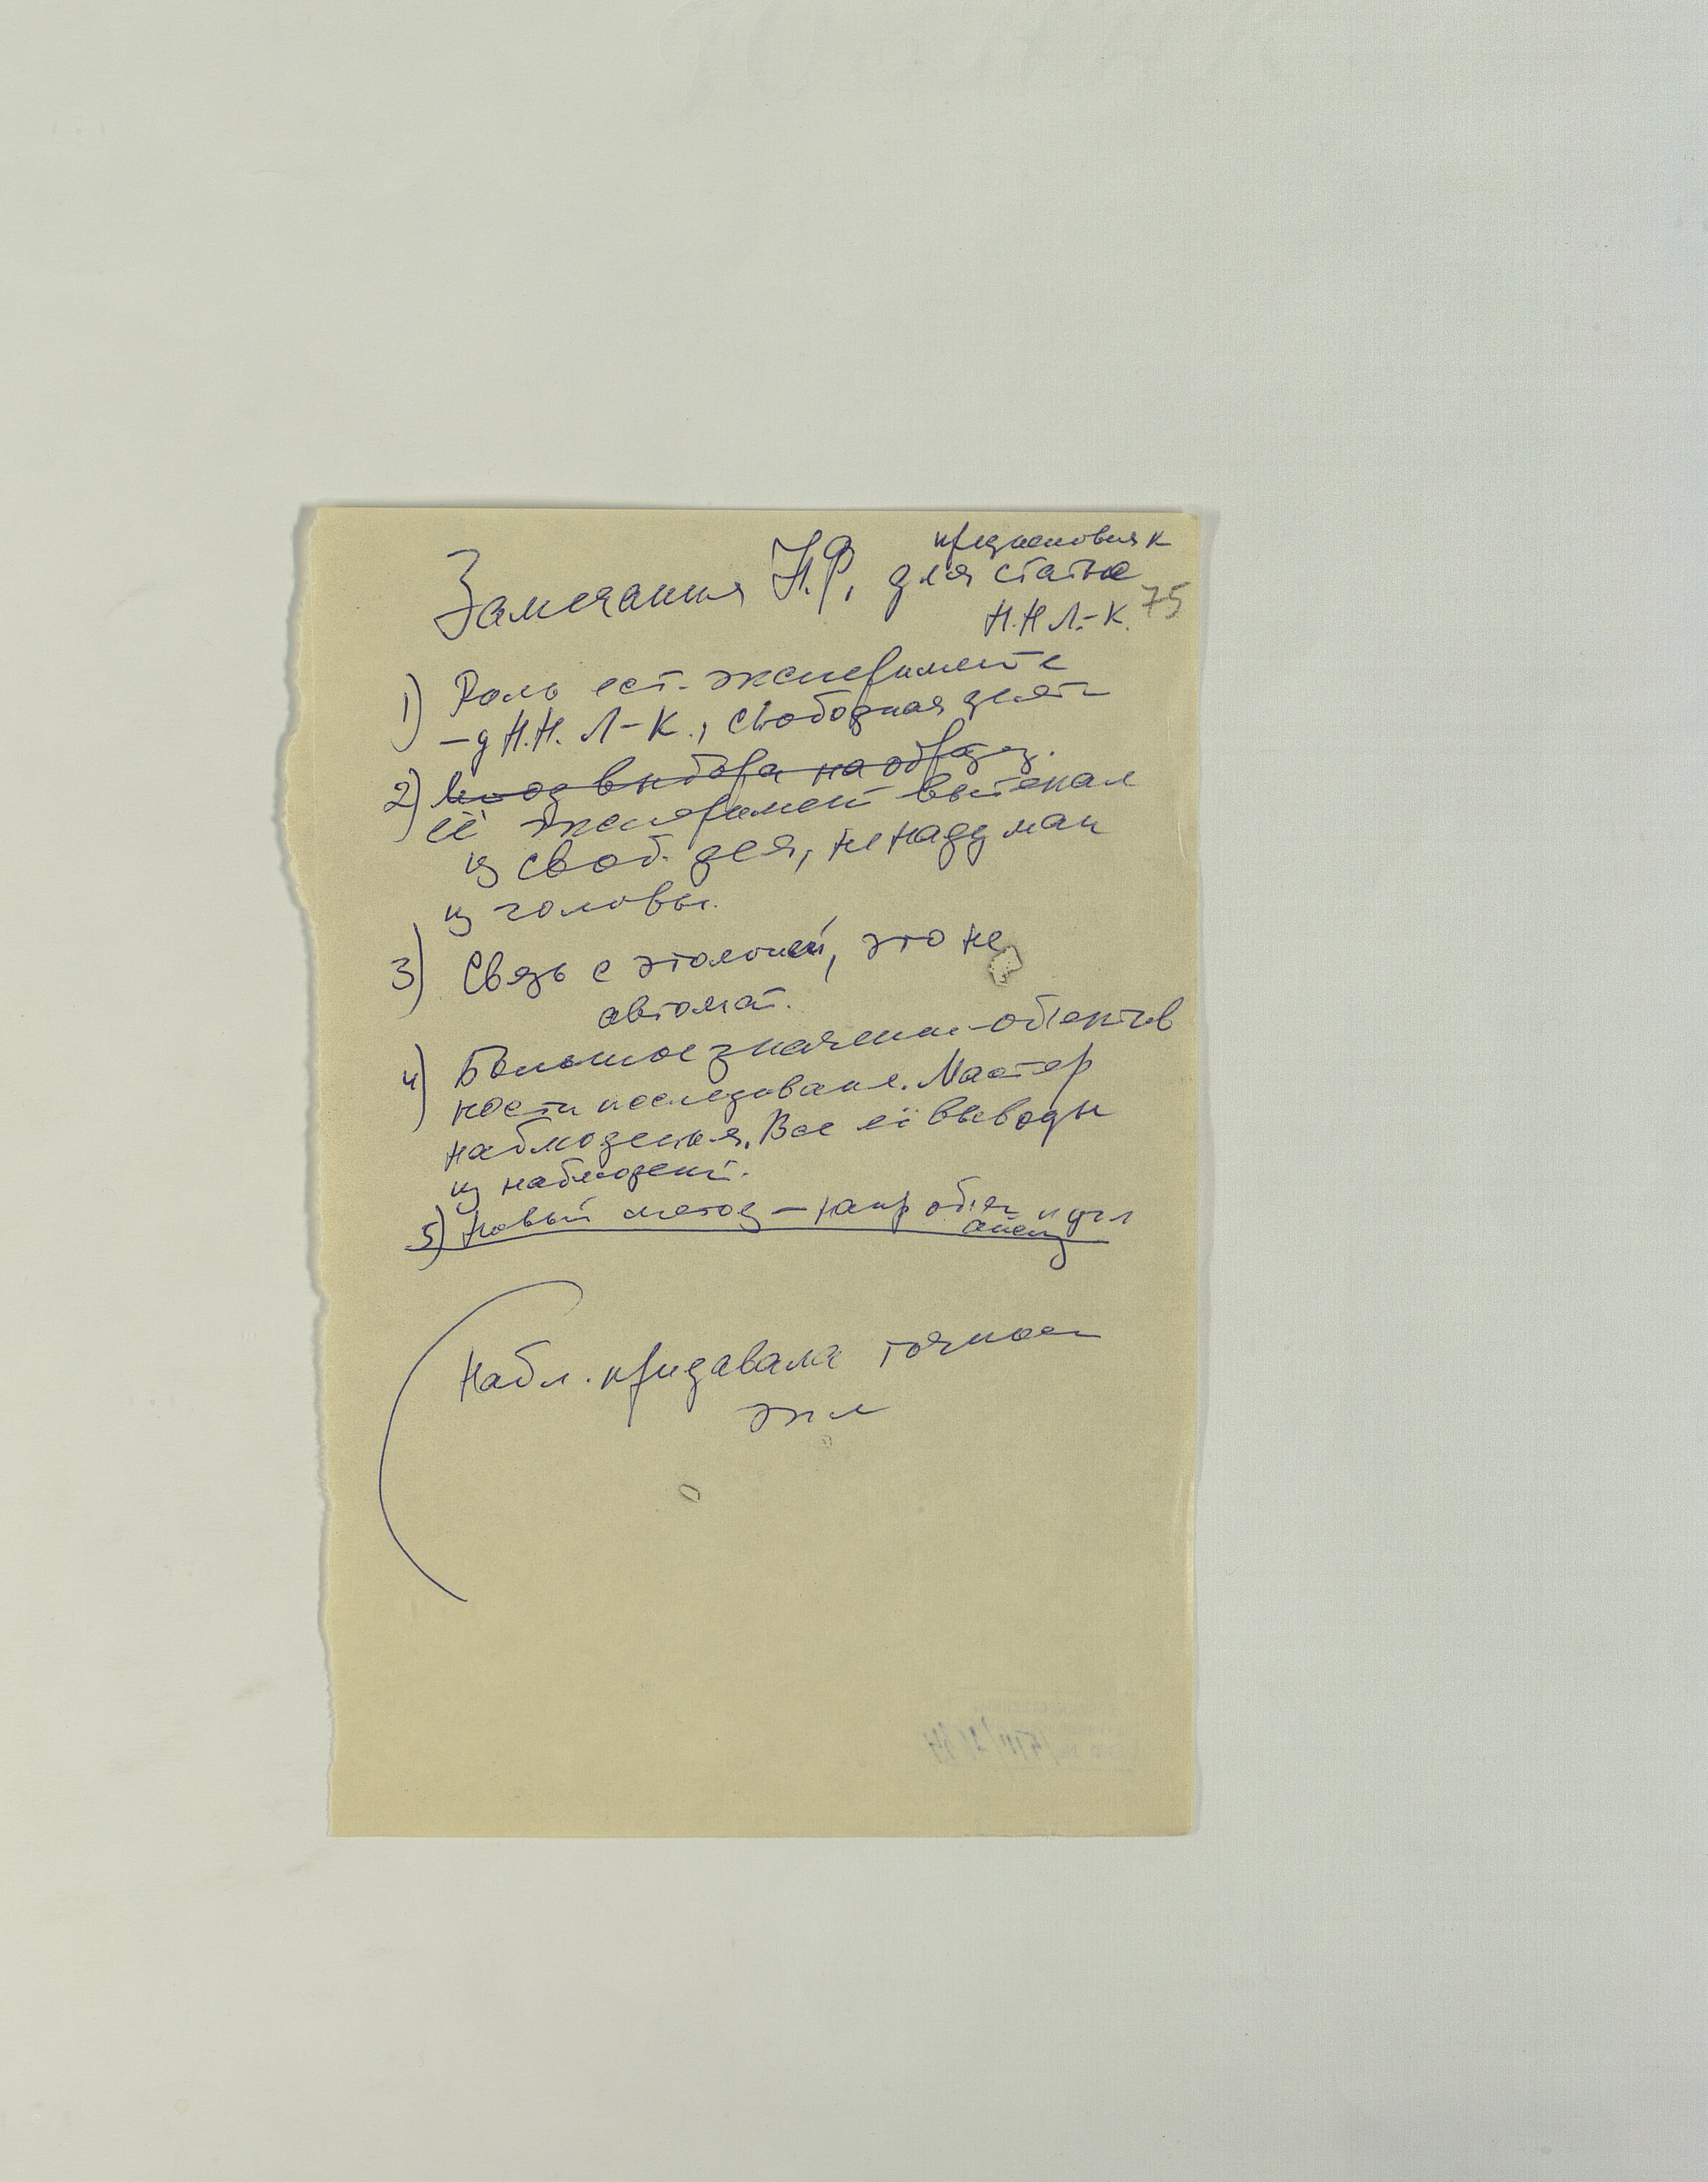 предисловия к
Замечания Н.Р. для статье
Н.Н Л.-К. 75
1) Роль ест. эксперимента
– у Н.Н. Л-К., свободная деят
2) Метод выбора на образ.
её эксперимент вытекал
из своб. дея, не надуман
из головы.
3) Связь с этологией, это не
автомат.
4) Большое значение объектив
ности исследования. Мастер
наблюдения. Все её выводы
из наблюдений.
5) Новый метод – напр
Набл. придавала точност